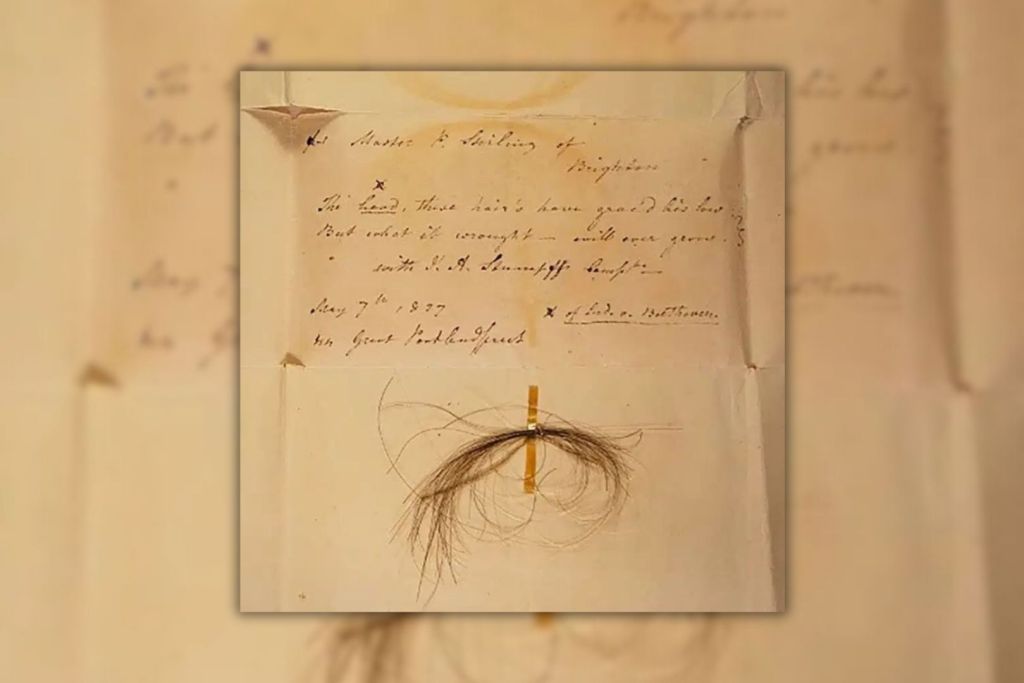 for Master Stirling of
Brighton
x
The head, these hair's have grac'd lies low
But what it wrought — will ever grow.
with J. A. Stumpff's
May 7th, 1827 x of Lud. v. Beethoven.
Great Portland Street